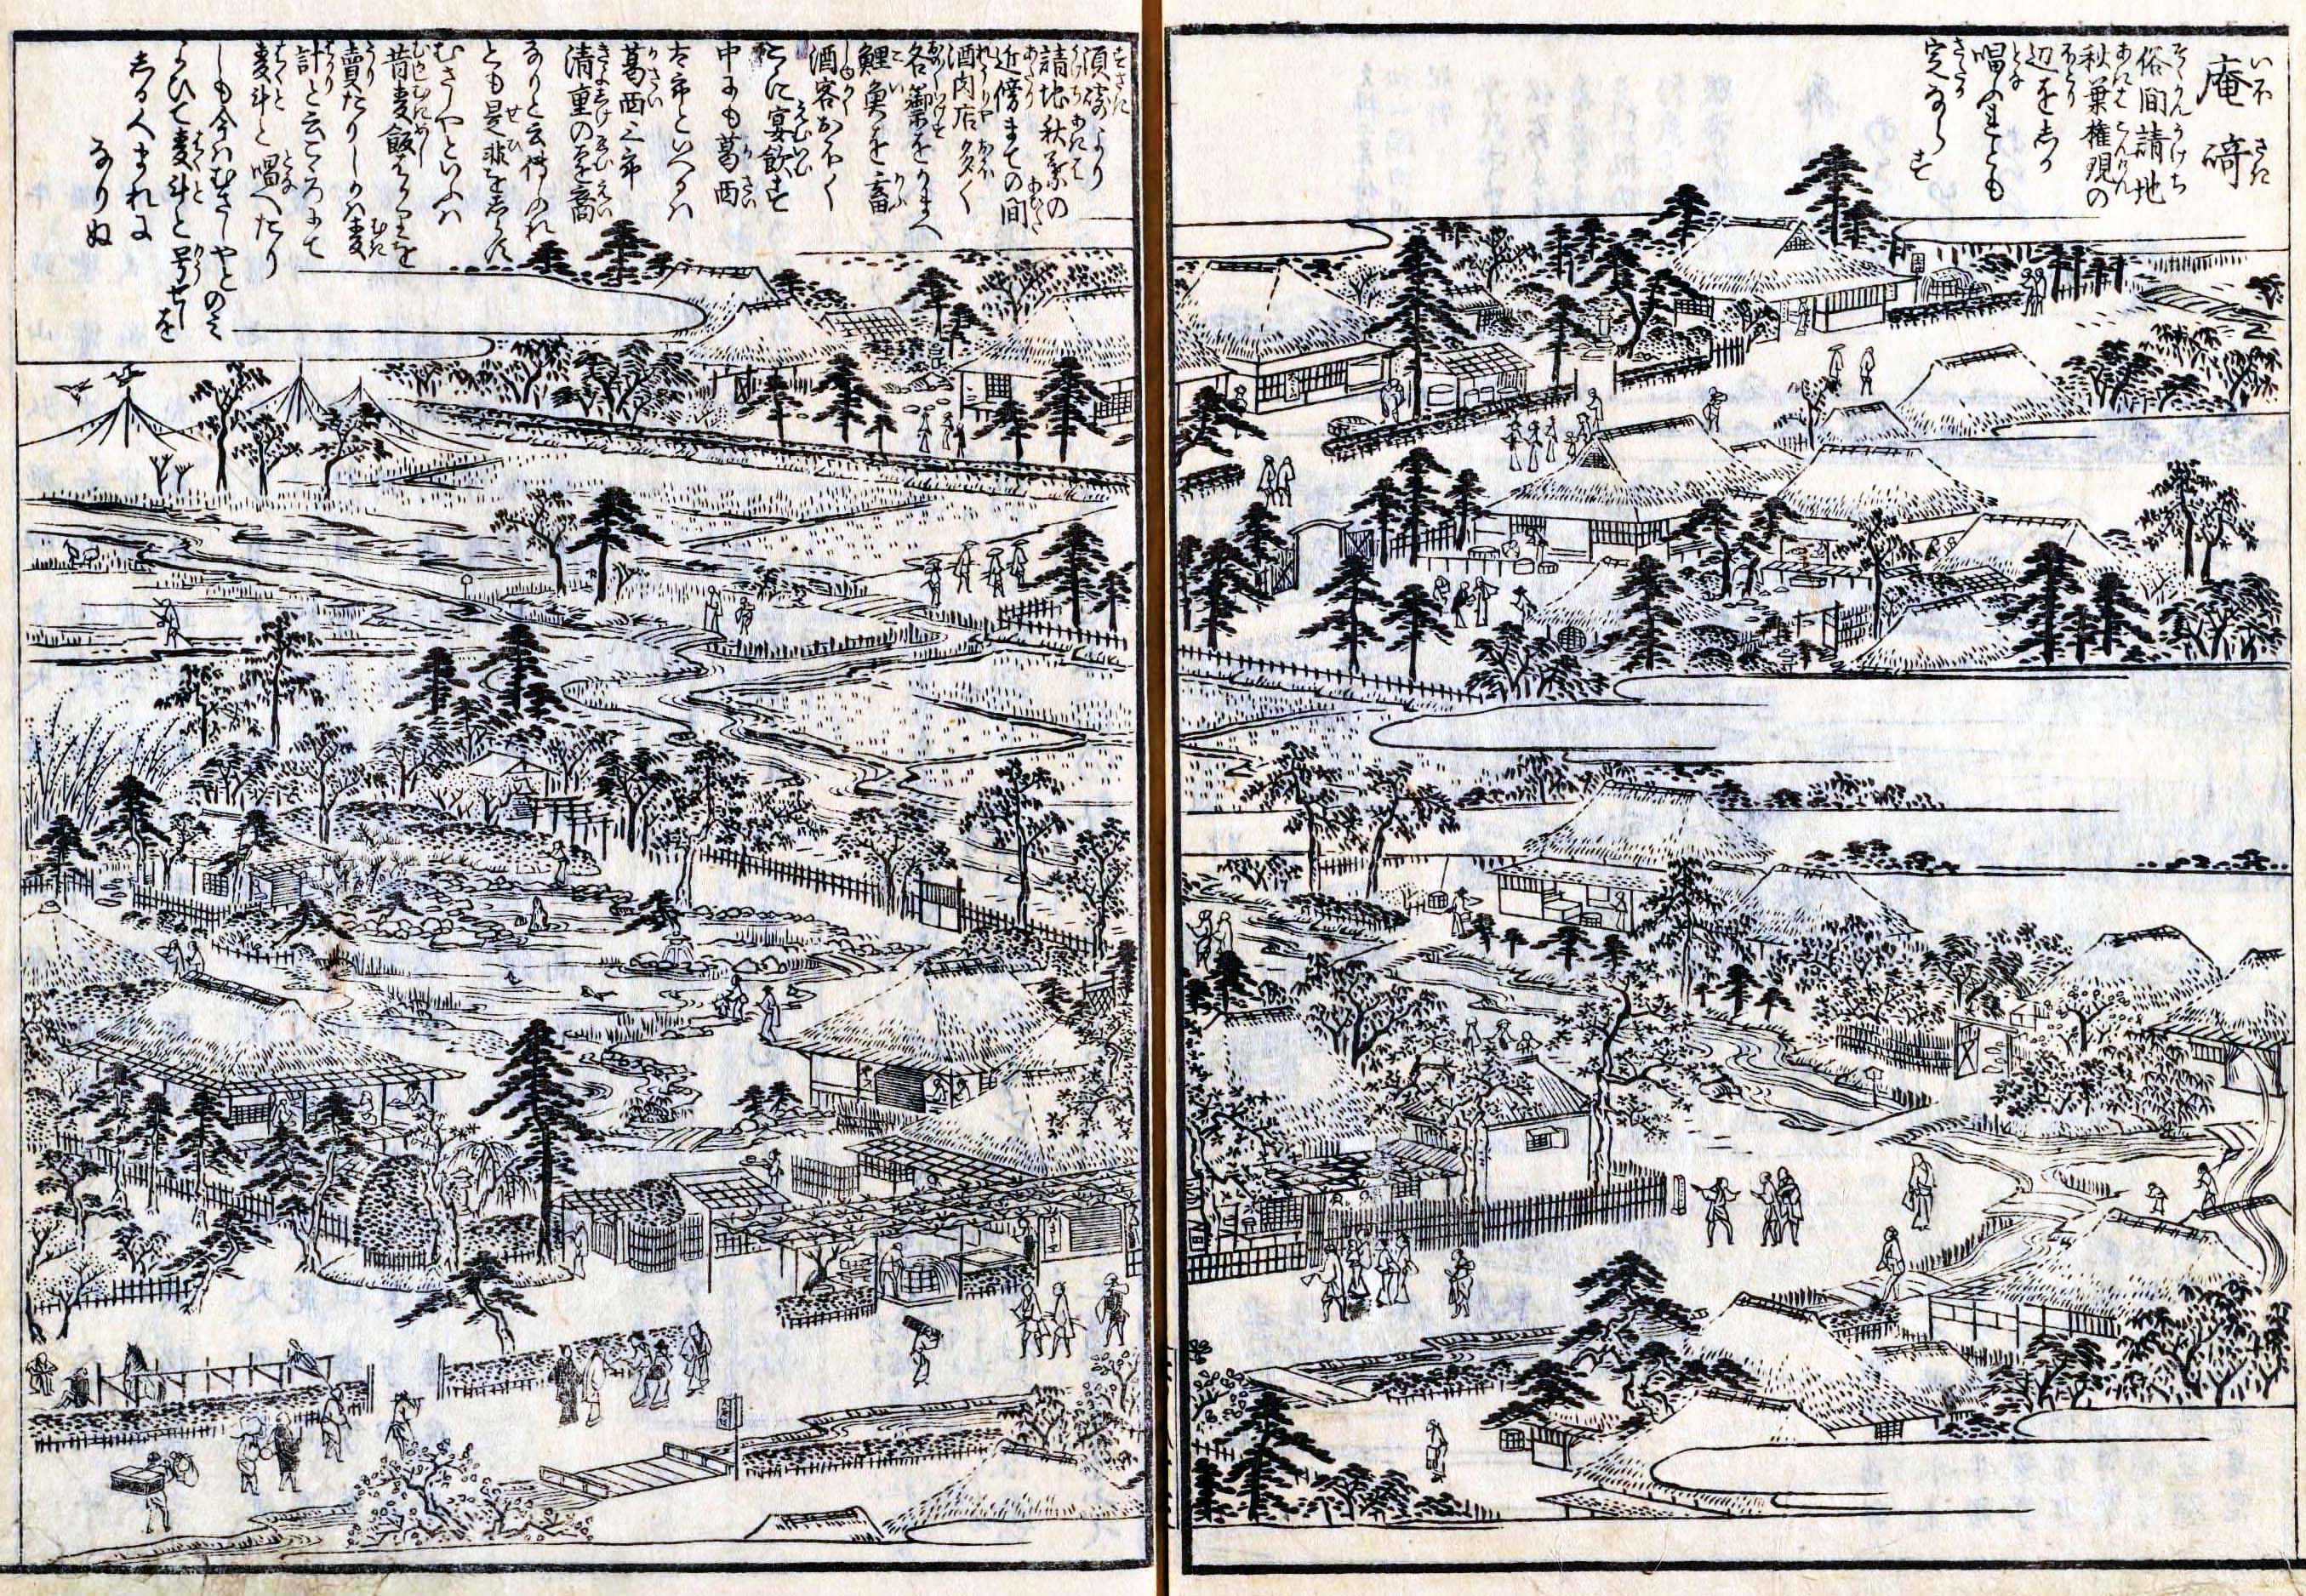 庵﨑
いほさき
俗間請地
秋葉権現の
辺をしか
唱ふれとも
定ならす
須崎より
請地秋葉の
近傍まての間
酒肉店多く
各籞をかまへ
鯉魚を畜
酒客おほく
こゝに宴飲す
中にも葛西
太郎といへるハ
葛西三郎
清重の遠裔
なりと云伝ふれ
とも是非をしらす
むさしやといふハ
昔麦飯はかりを
売たりしかハ麦
計と云こゝろにて
麦斗と唱へたり
しも今ハむさしやとのミ
よひて麦斗と号せしを
しる人まれに
なりぬ